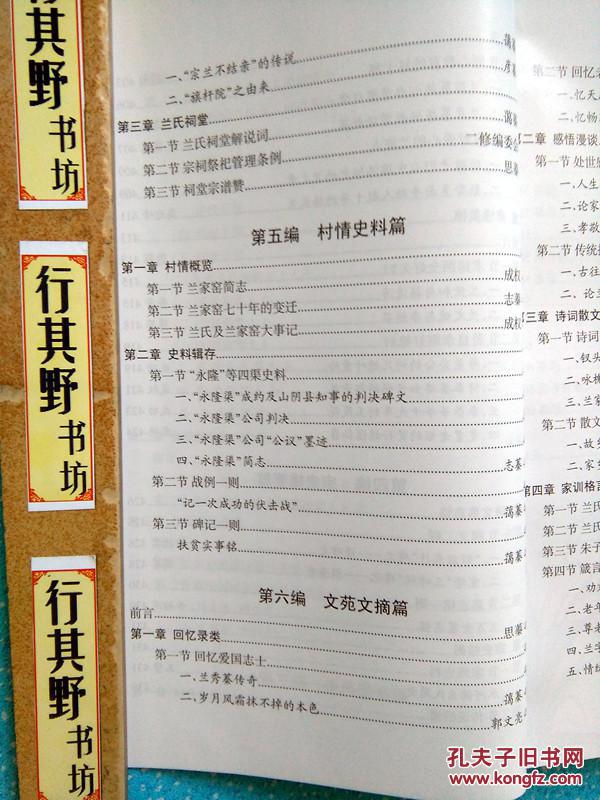 行其野书坊
行其野书坊
行其野书坊
一、“宗兰不结亲”的传说
二、“旗杆院”之由来
第三章 兰氏祠堂
第一节 兰氏祠堂解说词
二修编委会
第二节 宗祠祭祀管理条例
思蓁
第三节 祠堂宗谱赞
第五编 村情史料篇
第一章 村情概览
第一节 兰家窑简志 成权
第二节 兰家窑七十年的变迁 志蓁
第三节 兰氏及兰家窑大事记 成权
第二章 史料辑存
第一节 “永隆”等四渠史料
一、“永隆渠”成约及山阴县知事的判决碑文
二、“永隆渠”公司判决
三、“永隆渠”公司“公议”墨迹
四、“永隆渠”简志 志蓁
第二节 战例一则
“记一次成功的伏击战” 蔼蓁
第三节 碑记一则
扶贫实事铭 蔼蓁
第六编 文苑文摘篇
前言
思蓁
第一章 回忆录类
第一节 回忆爱国志士
一、兰秀蓁传奇 蔼蓁
二、岁月风霜抹不掉的本色 郭文亮
第二节 回忆
一、忆天
二、忆畅
二章 感悟漫谈
第一节 处世
一、人生
二、论家
三、孝敬
第二节 传统
一、古往
二、论
三章 诗词散文
第一节 诗词
一、钗头
二、咏梅
三、兰家
第二节 散文
一、故乡
二、家乡
第四章 家训格言
第一节 兰氏
第二节 兰氏
第三节 朱子
第四节 箴言
一、劝
二、老年
三、尊老
四、兰字
五、情
孔夫子旧书网
www.kongfz.com